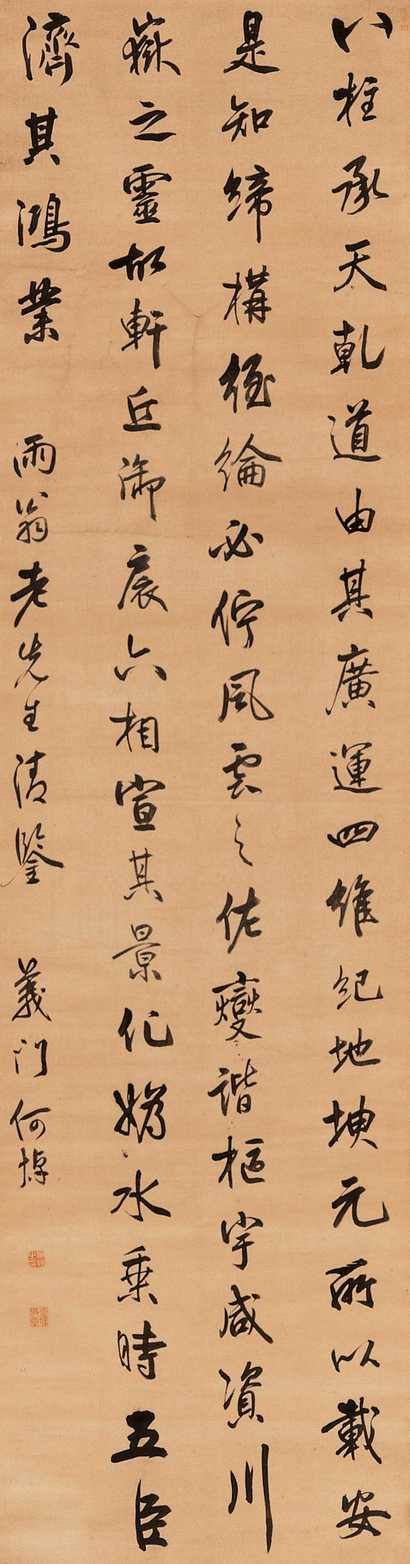 八柱承天乾道由其廣運四維紀地坤元所以載安
是知締構經綸必佇風雲之佐燮諧樞宰咸資川
嶽之靈故軒丘御扆六相宣其景化媯水乘時五臣
濟其鴻業 雨翁老先生清鑒 義門何焯